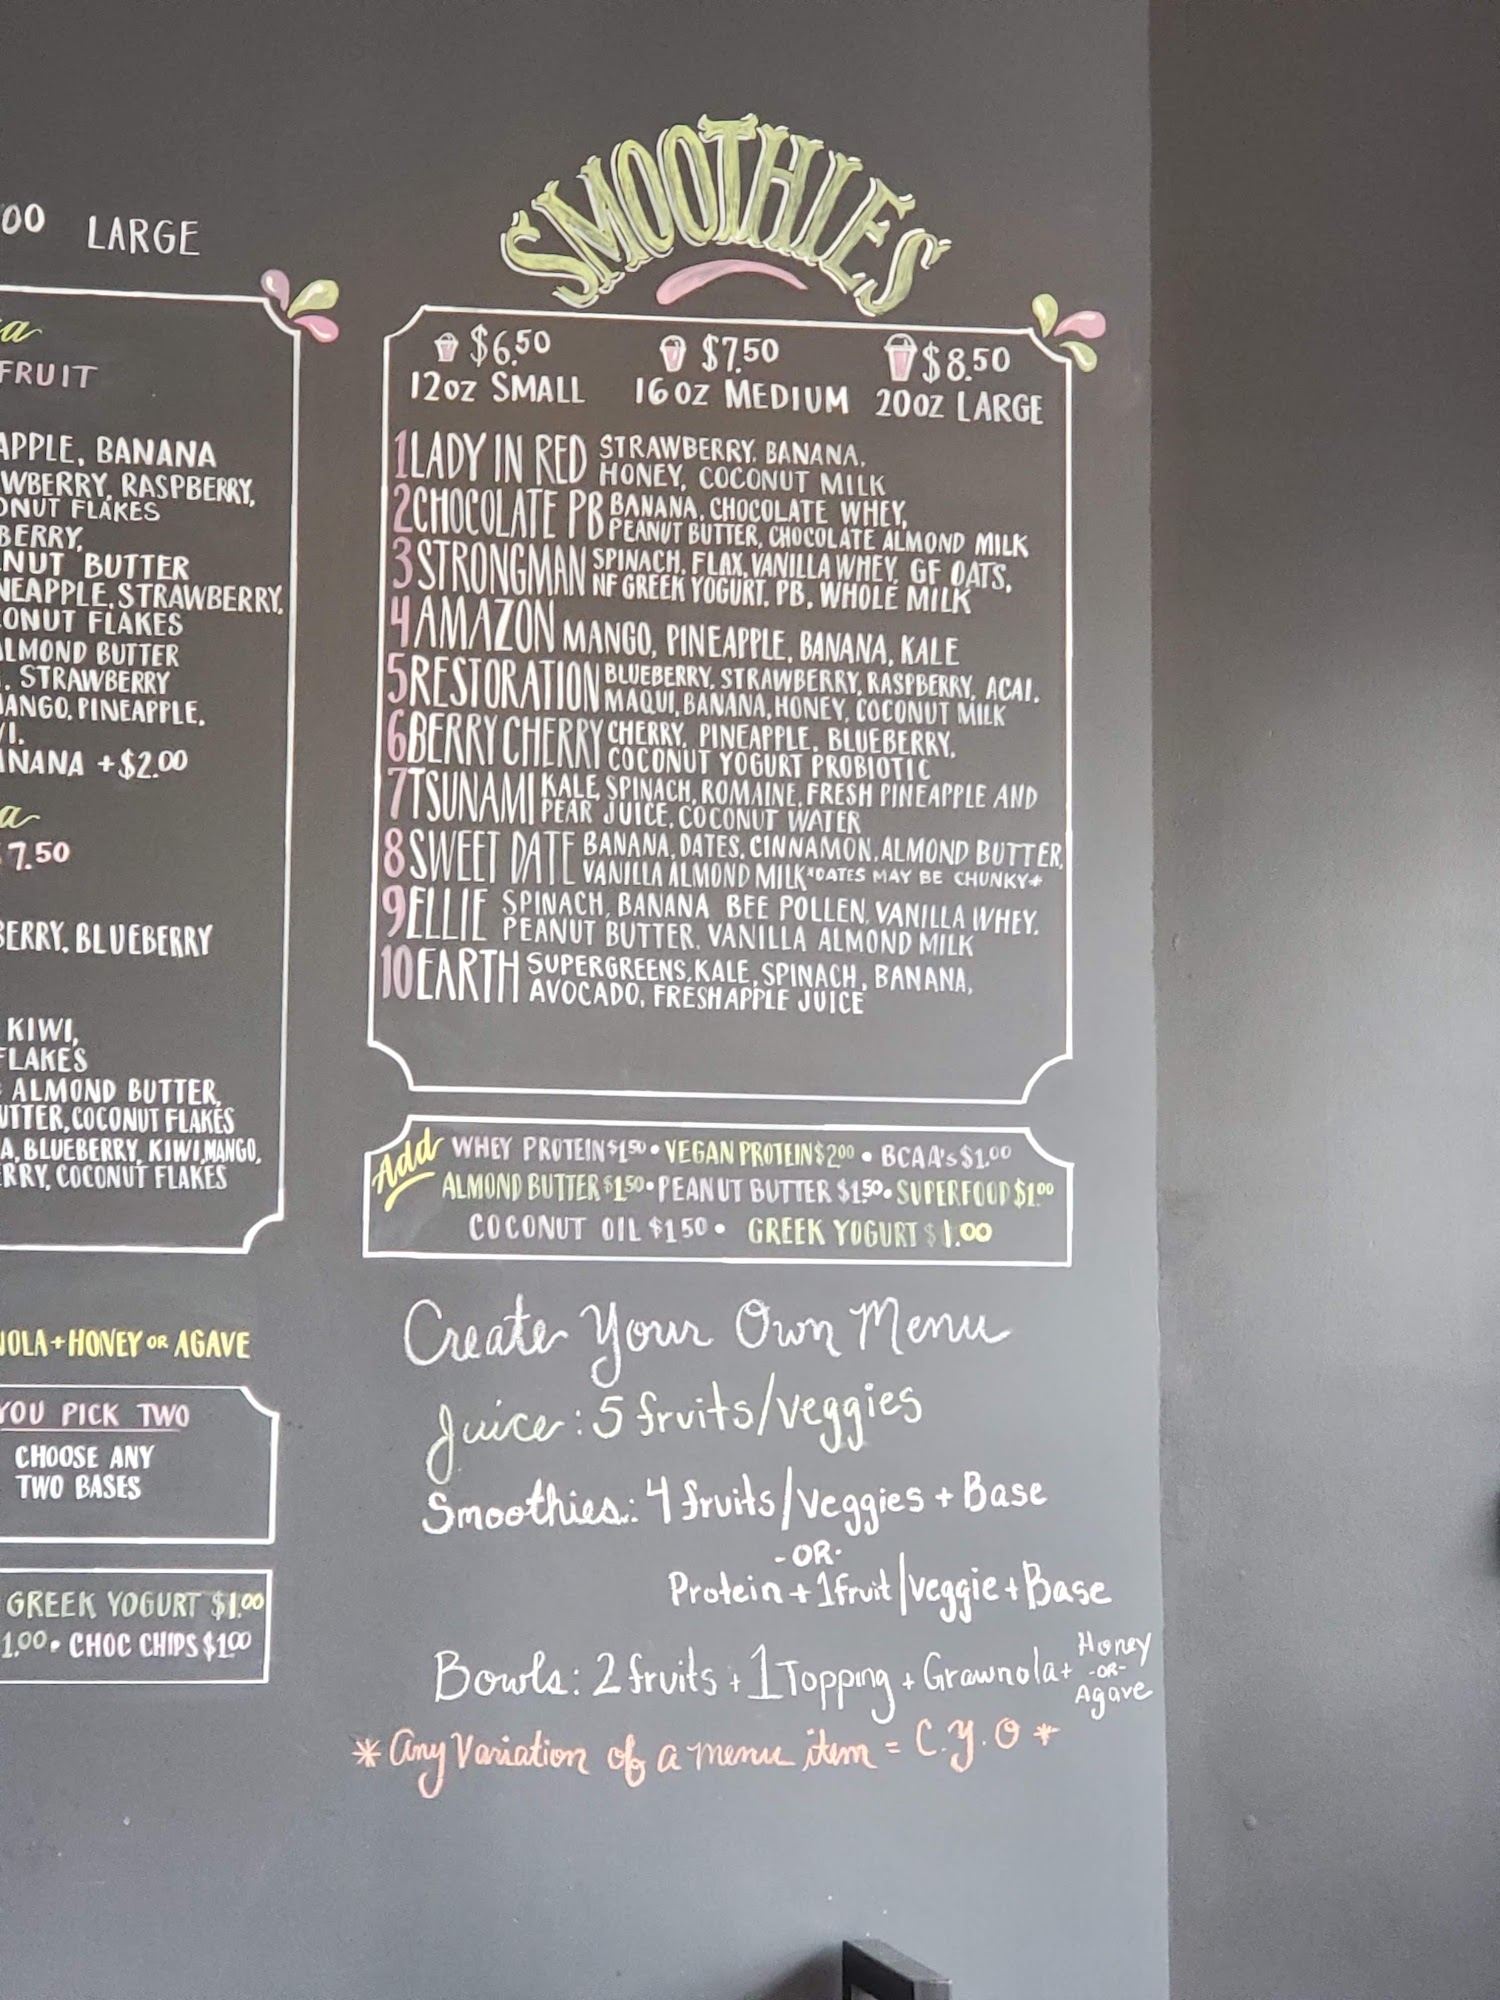 00 LARGE
a
FRUIT
APPLE, BANANA
WBERRY, RASPBERRY,
ONUT FLAKES
BERRY,
NUT BUTTER
NEAPPLE, STRAWBERRY,
ONUT FLAKES
ALMOND BUTTER
. STRAWBERRY
MANGO, PINEAPPLE,
I.
NANA +$2.00
a
7.50
BERRY, BLUEBERRY
KIWI,
FLAKES
ALMOND BUTTER,
UTTER, COCONUT FLAKES
A, BLUEBERRY, KIWI, MANGO,
RRY, COCONUT FLAKES
NOLA + HONEY OR AGAVE
YOU PICK TWO
CHOOSE ANY
TWO BASES
GREEK YOGURT $1.00
1.00 • CHOC CHIPS $1.00
SMOOTHIES
$6.50 $7.50 $8.50
12oz SMALL 16oz MEDIUM 20oz LARGE
1 LADY IN RED STRAWBERRY, BANANA,
HONEY, COCONUT MILK
2 CHOCOLATE PB BANANA, CHOCOLATE WHEY,
PEANUT BUTTER, CHOCOLATE ALMOND MILK
3 STRONGMAN SPINACH, FLAX, VANILLA WHEY, GF OATS,
NF GREEK YOGURT, PB, WHOLE MILK
4 AMAZON MANGO, PINEAPPLE, BANANA, KALE
5 RESTORATION BLUEBERRY, STRAWBERRY, RASPBERRY, ACAI,
MAQUI, BANANA, HONEY, COCONUT MILK
6 BERRY CHERRY CHERRY, PINEAPPLE, BLUEBERRY,
COCONUT YOGURT PROBIOTIC
7 TSUNAMI KALE, SPINACH, ROMAINE, FRESH PINEAPPLE AND
PEAR JUICE, COCONUT WATER
8 SWEET DATE BANANA, DATES, CINNAMON, ALMOND BUTTER,
VANILLA ALMOND MILK *DATES MAY BE CHUNKY*
9 ELLIE SPINACH, BANANA BEE POLLEN, VANILLA WHEY,
PEANUT BUTTER, VANILLA ALMOND MILK
10 EARTH SUPERGREENS, KALE, SPINACH, BANANA,
AVOCADO, FRESH APPLE JUICE
Add WHEY PROTEIN $1.50 • VEGAN PROTEIN $2.00 • BCAA's $1.00
ALMOND BUTTER $1.50 • PEANUT BUTTER $1.50 • SUPERFOOD $1.00
COCONUT OIL $1.50 • GREEK YOGURT $1.00
Create Your Own Menu
Juice: 5 fruits/veggies
Smoothies: 4 fruits/veggies + Base
-OR-
Protein + 1 fruit/veggie + Base
Bowls: 2 fruits + 1 Topping + Grawnola + Honey
-OR-
Agave
* Any Variation of a menu item = C.Y.O *